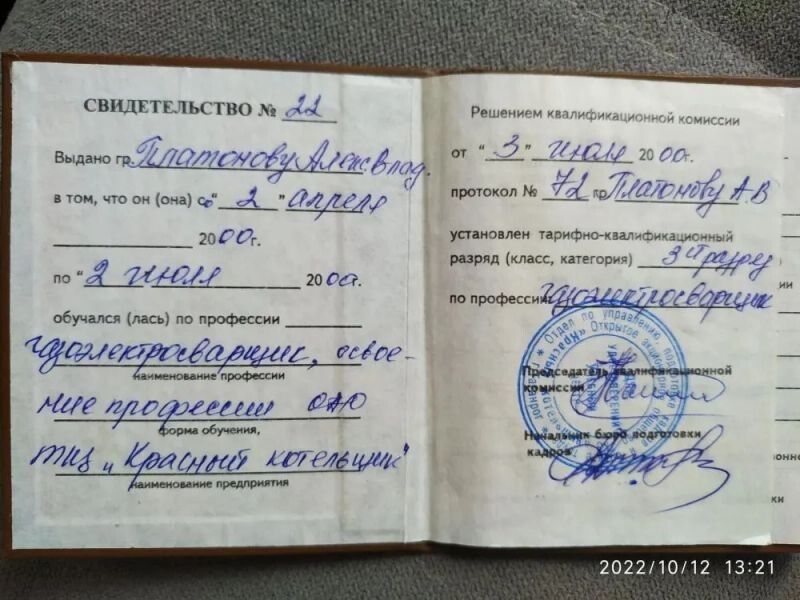 СВИДЕТЕЛЬСТВО № 22
Выдано гр. Платонову Алек Влад.
в том, что он (она) с "2" апреля
2000г.
по "2 июля 2000г.
обучался (лась) по профессии
газоэлектросварщик, освое-
наименование профессии
ние профессии ОАО
форма обучения,
ТКЗ "Красный котельщик"
наименование предприятия
Решением квалификационной комиссии
от "3" июля 2000г.
протокол № 72 гр Платонову А.В
установлен тарифно-квалификационный
разряд (класс, категория) 3й разряд
по профессии газоэлектросварщик
Председатель квалификационной
комиссии
Начальник бюро подготовки
кадров
Отдел по управлению
Открытое акционерное
Красный
2022/10/12 13:21